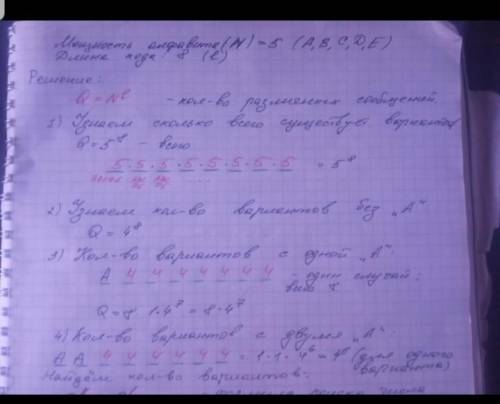 Мощность алфавита (N) = 5 (A, B, C, D, E)
Длина кода: 8 (l)
Решение:
Q = Nˡ - кол-во различных сообщений.
1) Узнаем сколько всего существует вариантов
Q = 5⁸ - всего
5 · 5 · 5 · 5 · 5 · 5 · 5 · 5 = 5⁸
2) Узнаем кол-во вариантов без „А“
Q = 4⁸
3) Кол-во вариантов с одной „А“.
A 4 4 4 4 4 4 4 - один случай:
всего 8
Q = 8 · 1 · 4⁷ = 8 · 4⁷
4) Кол-во вариантов с двумя „А“.
A A 4 4 4 4 4 4 = 1 · 1 · 4⁶ = 4⁶ (для одного
варианта)
Найдём кол-во вариантов: